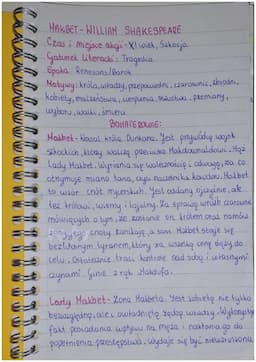 MAKBET - WILLIAM SHAKESPEARE
Czas i miejsce akcji - XI wiek, Szkocja.
Gatunek literacki: Tragedia
Epoka: Renesans/Barok
Motywy: króla, władzy, przepowiedni, czarownic, zbrodni,
kobiety, małżeństwa, sumienia, szaleństwa, przemiany,
wyboru, walki, śmierci
BOHATEROWIE:
Makbet - kuzyn króla Dunkana. Jest przywódcą wojsk
szkockich, którzy walczą przeciwko Makdonwaldowi. Mąż
Lady Makbet. Wyróżnia się walecznością i odwagą, za co
otrzymuje miano tana, czyli naczelnika Kawdoru. Makbet
to wzór cnót rycerskich. Jest oddany ojczyźnie, ale
też królowi, wierny i lojalny. Za sprawą wróżb czarownic
mówiących o tym, że zostanie on królem oraz namów
żony jego cnoty zanikają, a sam Makbet staje się
bezlitosnym tyranem, który za wszelką cenę dąży do
celu. Ostatecznie traci kontrolę nad sobą i własnymi
czynami. Ginie z rąk Makdufa.
Lady Makbet - Żona Makbeta. Jest kobietą nie tylko
bezwzględną, ale i owładniętą żądzą władzy. Wykorzystuje
fakt posiadania wpływu na męża i nakłania go do
popełnienia przestępstwa. Wydaje się być niewzruszona